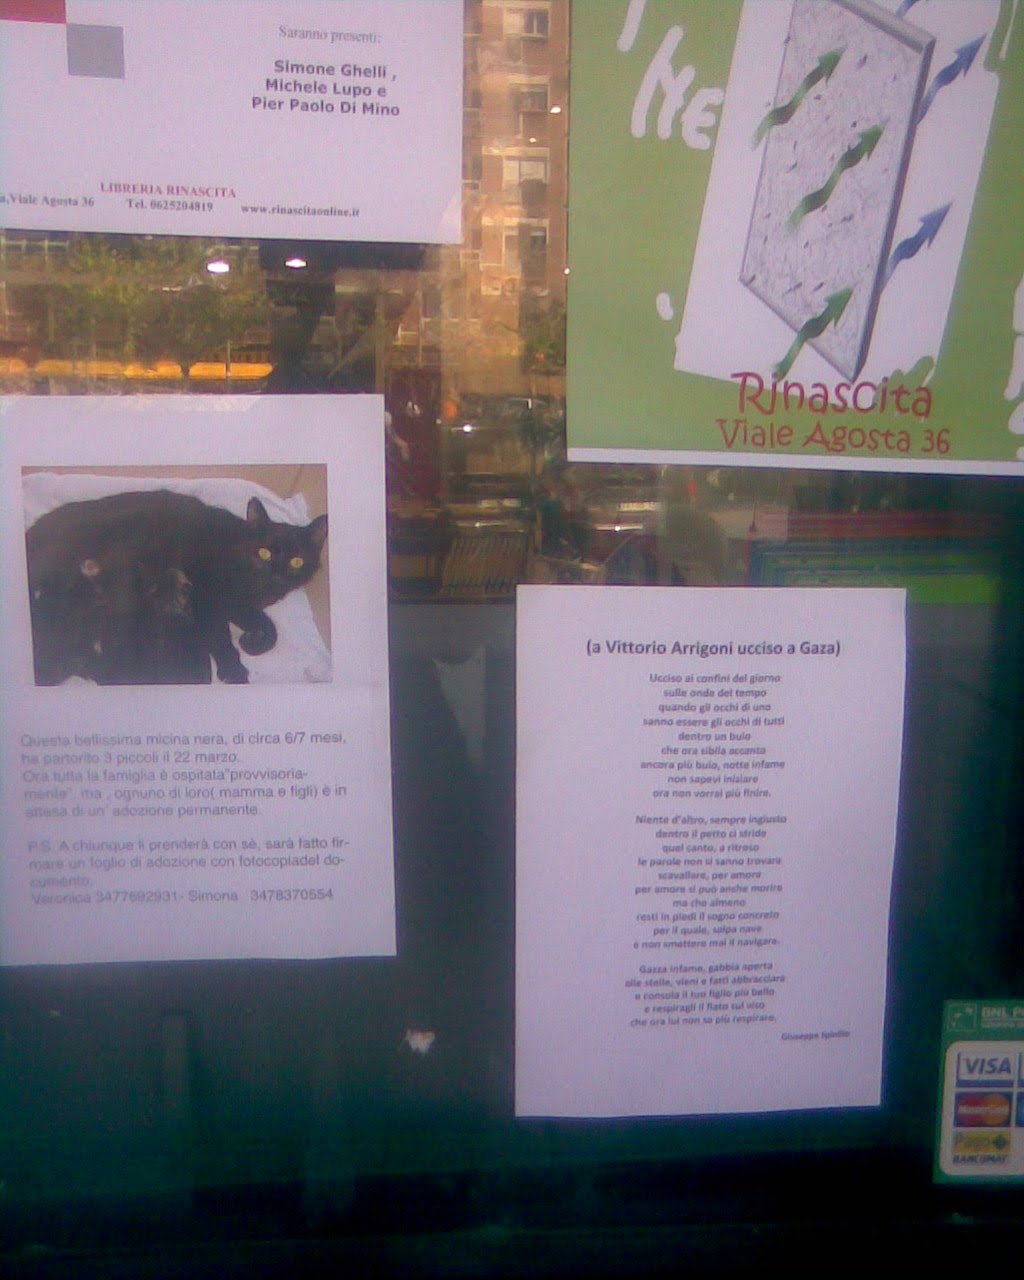 Saranno presenti:
Simone Ghelli ,
Michele Lupo e
Pier Paolo Di Mino
LIBRERIA RINASCITA
Viale Agosta 36 Tel. 0625204819 www.rinascitaonline.it
Rinascita
Viale Agosta 36
Questa bellissima micina nera, di circa 6/7 mesi,
ha partorito 3 piccoli il 22 marzo.
Ora tutta la famiglia è ospitata"provvisoria-
mente", ma , ognuno di loro( mamma e figli) è in
attesa di un' adozione permanente.
P.S. A chiunque li prenderà con sè, sarà fatto fir-
mare un foglio di adozione con fotocopiadel do-
cumento.
Veronica 3477692931- Simona 3478370554
(a Vittorio Arrigoni ucciso a Gaza)
Ucciso ai confini del giorno
sulle onde del tempo
quando gli occhi di uno
sanno essere gli occhi di tutti
dentro un buio
che ora sibila accanto
ancora più buio, notte infame
non sapevi iniziare
ora non vorrei più finire.
Niente d'altro, sempre ingiusto
dentro il petto ci stride
quel canto, a ritroso
le parole non si sanno trovare
scavallare, per amore
per amore si può anche morire
ma che almeno
resti in piedi il sogno concreto
per il quale, salpa nave
e non smettere mai il navigare.
Gazza infame, gabbia aperta
alle stelle, vieni e fatti abbracciare
e consola il tuo figlio più bello
e respiragli il fiato sul viso
che ora lui non sa più respirare.
Giuseppe Spinillo
BNL
VISA
MasterCard
Pago
BANCOMAT